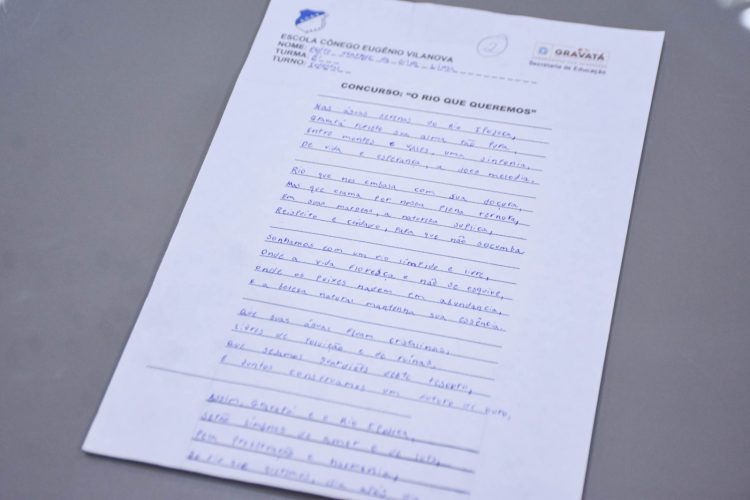 ESCOLA CÔNEGO EUGÊNIO VILANOVA
NOME:
TURMA:
TURNO:
2
GRAVATÁ
Secretaria de Educação
CONCURSO: "O RIO QUE QUEREMOS"
Nas águas serenas do Rio Ipojuca,
Gravatá reflete sua alma tão pura,
Entre montes e vales, uma sinfonia,
De vida e esperança, a doce melodia.
Rio que nos embala com sua doçura,
Mas que clama por nossa plena ternura,
Em suas margens, a natureza suplica,
Respeito e cuidado, para que não sucumba
Sonhamos com um rio límpido e livre,
Onde a vida floresça e não se esquive,
Onde os peixes nadem em abundância,
E a beleza natural mantenha sua essência.
Que suas águas sejam cristalinas,
Livres de poluição e de ruínas,
Que sejamos guardiões deste tesouro,
E juntos construamos um futuro de ouro,
Assim, Gravatá e o Rio Ipojuca,
Serão símbolos de amor e de luta,
Pela preservação e harmonia,
Do rio que queremos, dia após